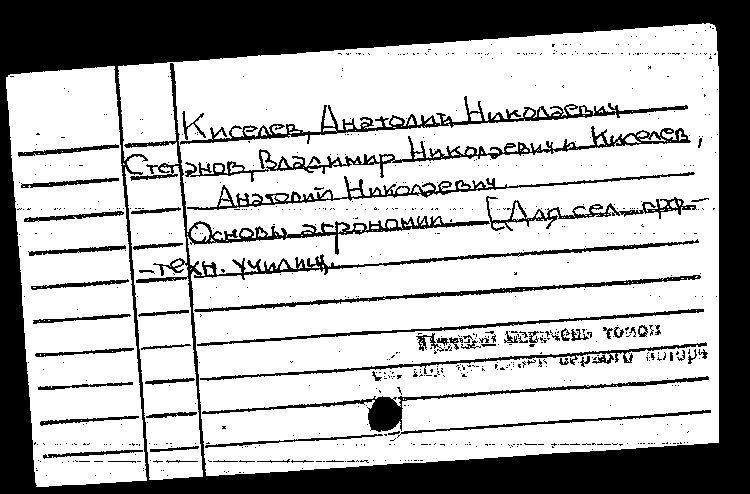 Киселев, Анатолий Николаевич
Степанов, Владимир Николаевич и Киселев,
Анатолий Николаевич
Основы агрономии. [Для сел. проф.-
-техн. училищ.
Полный перечень томов
см. под фамилией первого автора